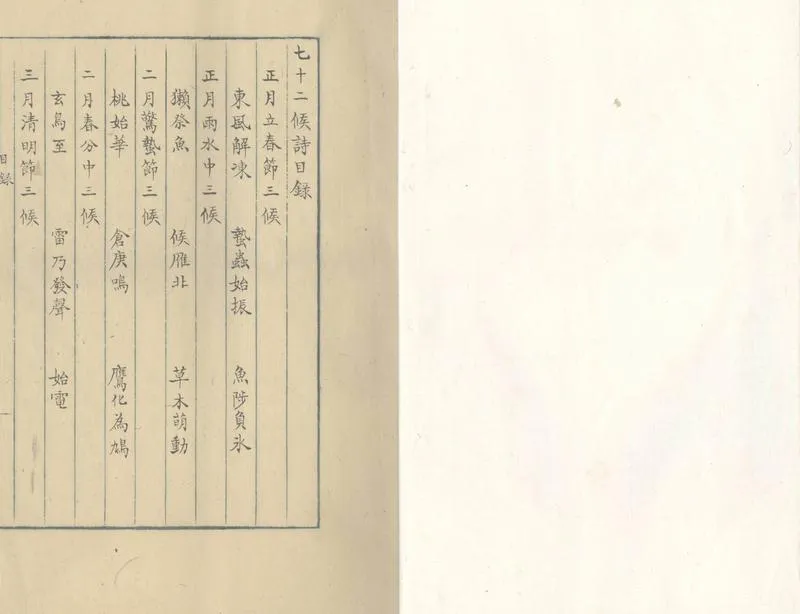 七十二候詩目錄
正月立春節三候
東風解凍 蟄蟲始振 魚陟負氷
正月雨水中三候
獺祭魚 候雁北 草木萌動
二月驚蟄節三候
桃始華 倉庚鳴 鷹化為鳩
二月春分中三候
玄鳥至 雷乃發聲 始電
三月清明節三候
目錄
一